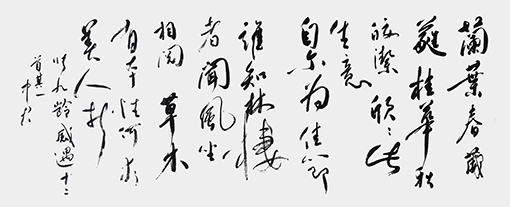 蘭葉春葳
蕤桂華秋
皎潔欣々此
生意
自尔为佳節
誰知林棲
者聞風坐
相悦草木
有本心何求
美人折
张九齡感遇十二
首其一